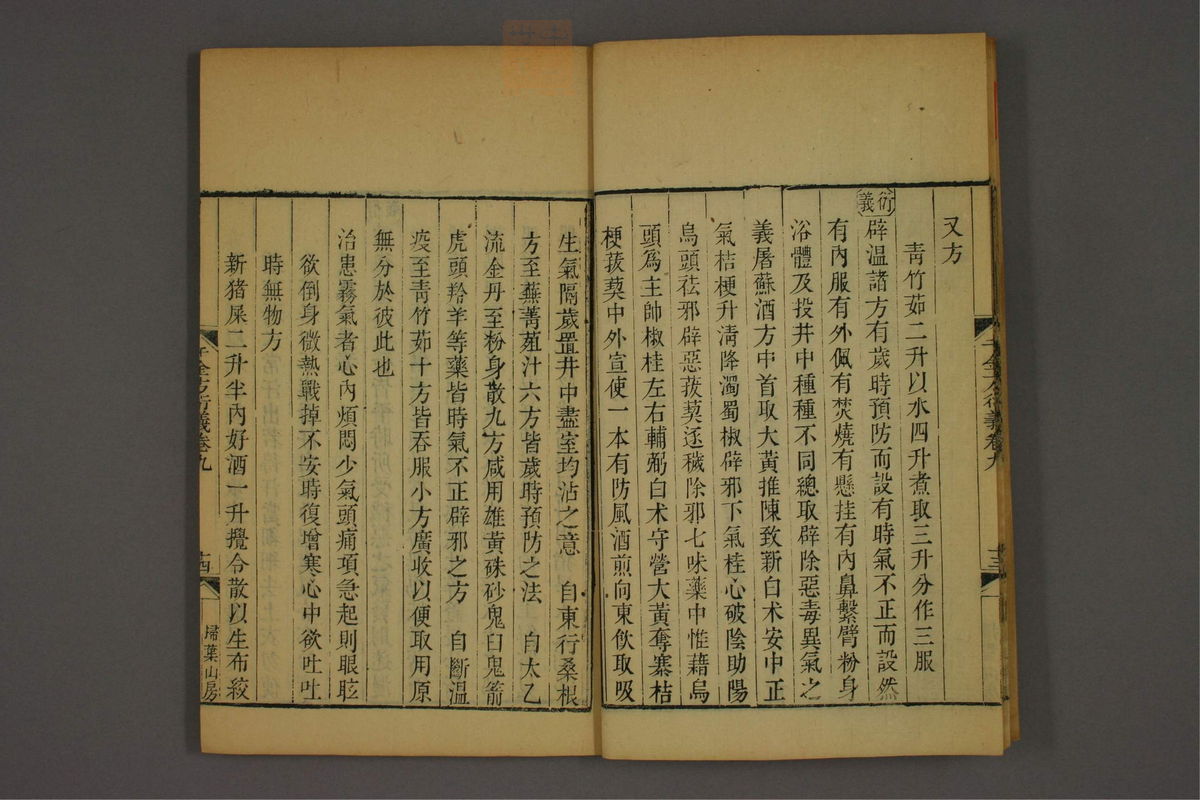 又方
青竹茹二升以水四升煮取三升分作三服
衍義
辟温諸方有歲時預防而設有時氣不正而設然
有內服有外佩有焚燒有懸挂有內鼻繫臂粉身
浴體及投井中種種不同總取辟除惡毒異氣之
義屠蘇酒方中首取大黃推陳致新白术安中正
氣桔梗升清降濁蜀椒辟邪下氣桂心破陰助陽
烏頭祛邪辟惡菝葜逐穢除邪七味藥中惟藉烏
頭爲主帥椒桂左右輔弼白术守營大黃奪寨桔
梗菝葜中外宣使一本有防風酒煎向東飲取吸
千金方衍義卷九
十三
生氣隔歲置井中盡室均沾之意 自東行桑根
方至蕪菁葅汁六方皆歲時預防之法 自太乙
流金丹至粉身散九方咸用雄黃硃砂鬼臼鬼箭
虎頭羚羊等藥皆時氣不正辟邪之方 自斷温
疫至青竹茹十方皆吞服小方廣收以便取用原
無分於彼此也
治患霧氣者心內煩悶少氣頭痛項急起則眼眩
欲倒身微熱戰掉不安時復增寒心中欲吐吐
時無物方
新猪屎二升半內好酒一升攪令散以生布絞
千金方衍義卷九
十四
掃葉山房